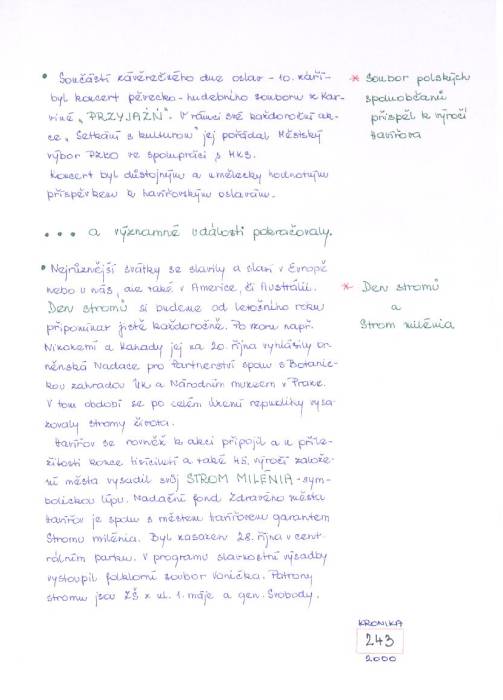 • Součástí závěrečného dne oslav – 10. září –
byl koncert pěvecko-hudebního souboru z Kar-
viné „PRZYJAŹŃ“. V rámci své každoroční ak-
ce „Setkání s kulturou“ jej pořádal Městský
výbor PZKO ve spolupráci s MKS.
Koncert byl důstojným a umělecky hodnotným
příspěvkem k havířovským oslavám.
* Soubor polských
spoluobčanů
přispěl k výročí
Havířova
... a významné události pokračovaly.
• Nejrůznější svátky se slavily a slaví v Evropě
nebo u nás, ale také v Americe, či Austrálii.
Den stromů si budeme od letošního roku
připomínat jistě každoročně. Po vzoru např.
Německa a Kanady jej na 20. října vyhlásily br-
něnská Nadace pro Partnerství spolu s Botanic-
kou zahradou UK a Národním muzeem v Praze.
V tom období se po celém území republiky vysa-
zovaly stromy života.
Havířov se rovněž k akci připojil a u příle-
žitosti konce tisíciletí a také 45. výročí založe-
ní města vysadil svůj STROM MILÉNIA - sym-
bolickou lípu. Nadační fond Zdravého města
Havířov je spolu s městem Havířovem garantem
Stromu milénia. Byl zasazen 28. října v cent-
rálním parku. V programu slavnostní výsadby
vystoupil folklorní soubor Vonička. Patrony
stromu jsou ZŠ z ul. 1. máje a gen. Svobody.
* Den stromů
a
Strom milénia
KRONIKA
243
2000